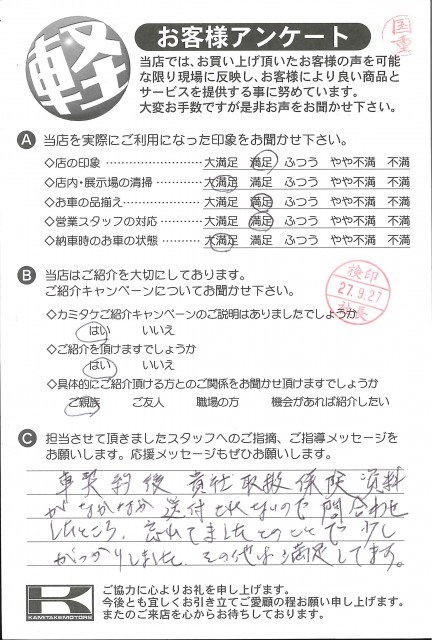 軽
お客様アンケート
国重
当店では、お買い上げ頂いたお客様の声を可能
な限り現場に反映し、お客様により良い商品と
サービスを提供する事に努めています。
大変お手数ですが是非お声をお聞かせ下さい。
A 当店を実際にご利用になった印象をお聞かせ下さい。
◇店の印象 ………………… 大満足 満足 ふつう やや不満 不満
◇店内・展示場の清掃 ………… 大満足 満足 ふつう やや不満 不満
◇お車の品揃え ……………… 大満足 満足 ふつう やや不満 不満
◇営業スタッフの対応 ………… 大満足 満足 ふつう やや不満 不満
◇納車時のお車の状態 ………… 大満足 満足 ふつう やや不満 不満
B 当店はご紹介を大切にしております。
ご紹介キャンペーンについてお聞かせ下さい。
検印
27.9.27
社長
◇カミタケご紹介キャンペーンのご説明はありましたでしょうか
はい いいえ
◇ご紹介を頂けますでしょうか
はい いいえ
◇具体的にご紹介頂ける方とのご関係をお聞かせ頂けますでしょうか
ご親族 ご友人 職場の方 機会があれば紹介したい
C 担当させて頂きましたスタッフへのご指摘、ご指導メッセージを
お願いします。応援メッセージもぜひお願いします。
車契約後 貴社取扱保険資料
がなかなか送付されないので問合わせ
したところ、忘れてましたとのことで少し
がっかりしました。その他は満足してます。
K
KAMITAKE MOTORS
ご協力に心よりお礼を申し上げます。
今後とも宜しくお引き立てご愛顧の程お願い申し上げます。
またのご来店を心からお待ちしております。